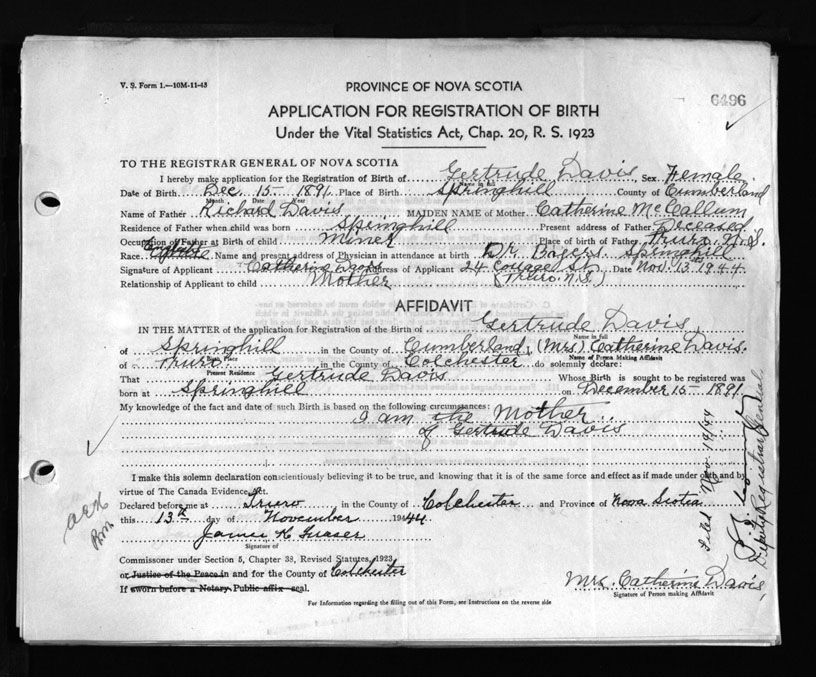 V. S. Form 1.—10M-11-43
PROVINCE OF NOVA SCOTIA
6496
APPLICATION FOR REGISTRATION OF BIRTH
Under the Vital Statistics Act, Chap. 20, R. S. 1923
TO THE REGISTRAR GENERAL OF NOVA SCOTIA
I hereby make application for the Registration of Birth of Gertrude Davis, Sex. Female
Name in full
Date of Birth Dec. 15 - 1891 Place of Birth Springhill County of Cumberland
Month Date Year
Name of Father Richard Davis MAIDEN NAME of Mother Catherine McCallum
Residence of Father when child was born Springhill Present address of Father Deceased
Occupation of Father at Birth of child Miner Place of birth of Father Truro, N.S.
Race English Name and present address of Physician in attendance at birth Dr. Springhill
Signature of Applicant Catherine Davis Address of Applicant 24 College St. Date Nov. 13 1944
Relationship of Applicant to child Mother (Truro N.S.)
AFFIDAVIT
IN THE MATTER of the application for Registration of the Birth of Gertrude Davis
Name in full
of Springhill in the County of Cumberland, (Mrs.) Catherine Davis.
Birth Place Name of Person Making Affidavit
of Truro in the County of Colchester do solemnly declare:
Present Residence
That Gertrude Davis Whose Birth is sought to be registered was
born at Springhill on December 15 - 1891
My knowledge of the fact and date of such Birth is based on the following circumstances:
I am the Mother
of Gertrude Davis
I make this solemn declaration conscientiously believing it to be true, and knowing that it is of the same force and effect as if made under oath and by
virtue of The Canada Evidence Act.
Declared before me at Truro in the County of Colchester and Province of Nova Scotia
this 13th day of November 1944
James H Fraser
Signature of
Commissioner under Section 5, Chapter 38, Revised Statutes, 1923
or Justice of the Peace in and for the County of Colchester
If sworn before a Notary Public affix seal.
Mrs. Catherine Davis,
Signature of Person making Affidavit
For Information regarding the filling out of this Form, see Instructions on the reverse side
Filed Nov. 19/44
Deputy Registrar General.